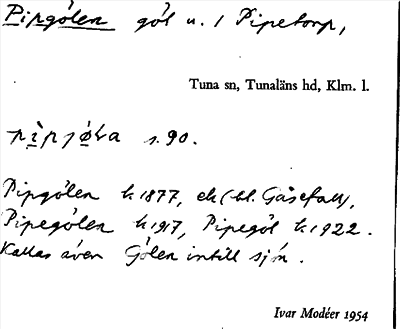 Pipgölen göl u. / Pipetorp,
Tuna sn, Tunaläns hd, Klm. l.
s. 90.
Pipgölen k 1877, ek (bl. Gåsefall),
Pipegölen k 1917, Pipegöl k 1922.
Kallas även Gölen intill sjön.
Ivar Modéer 1954